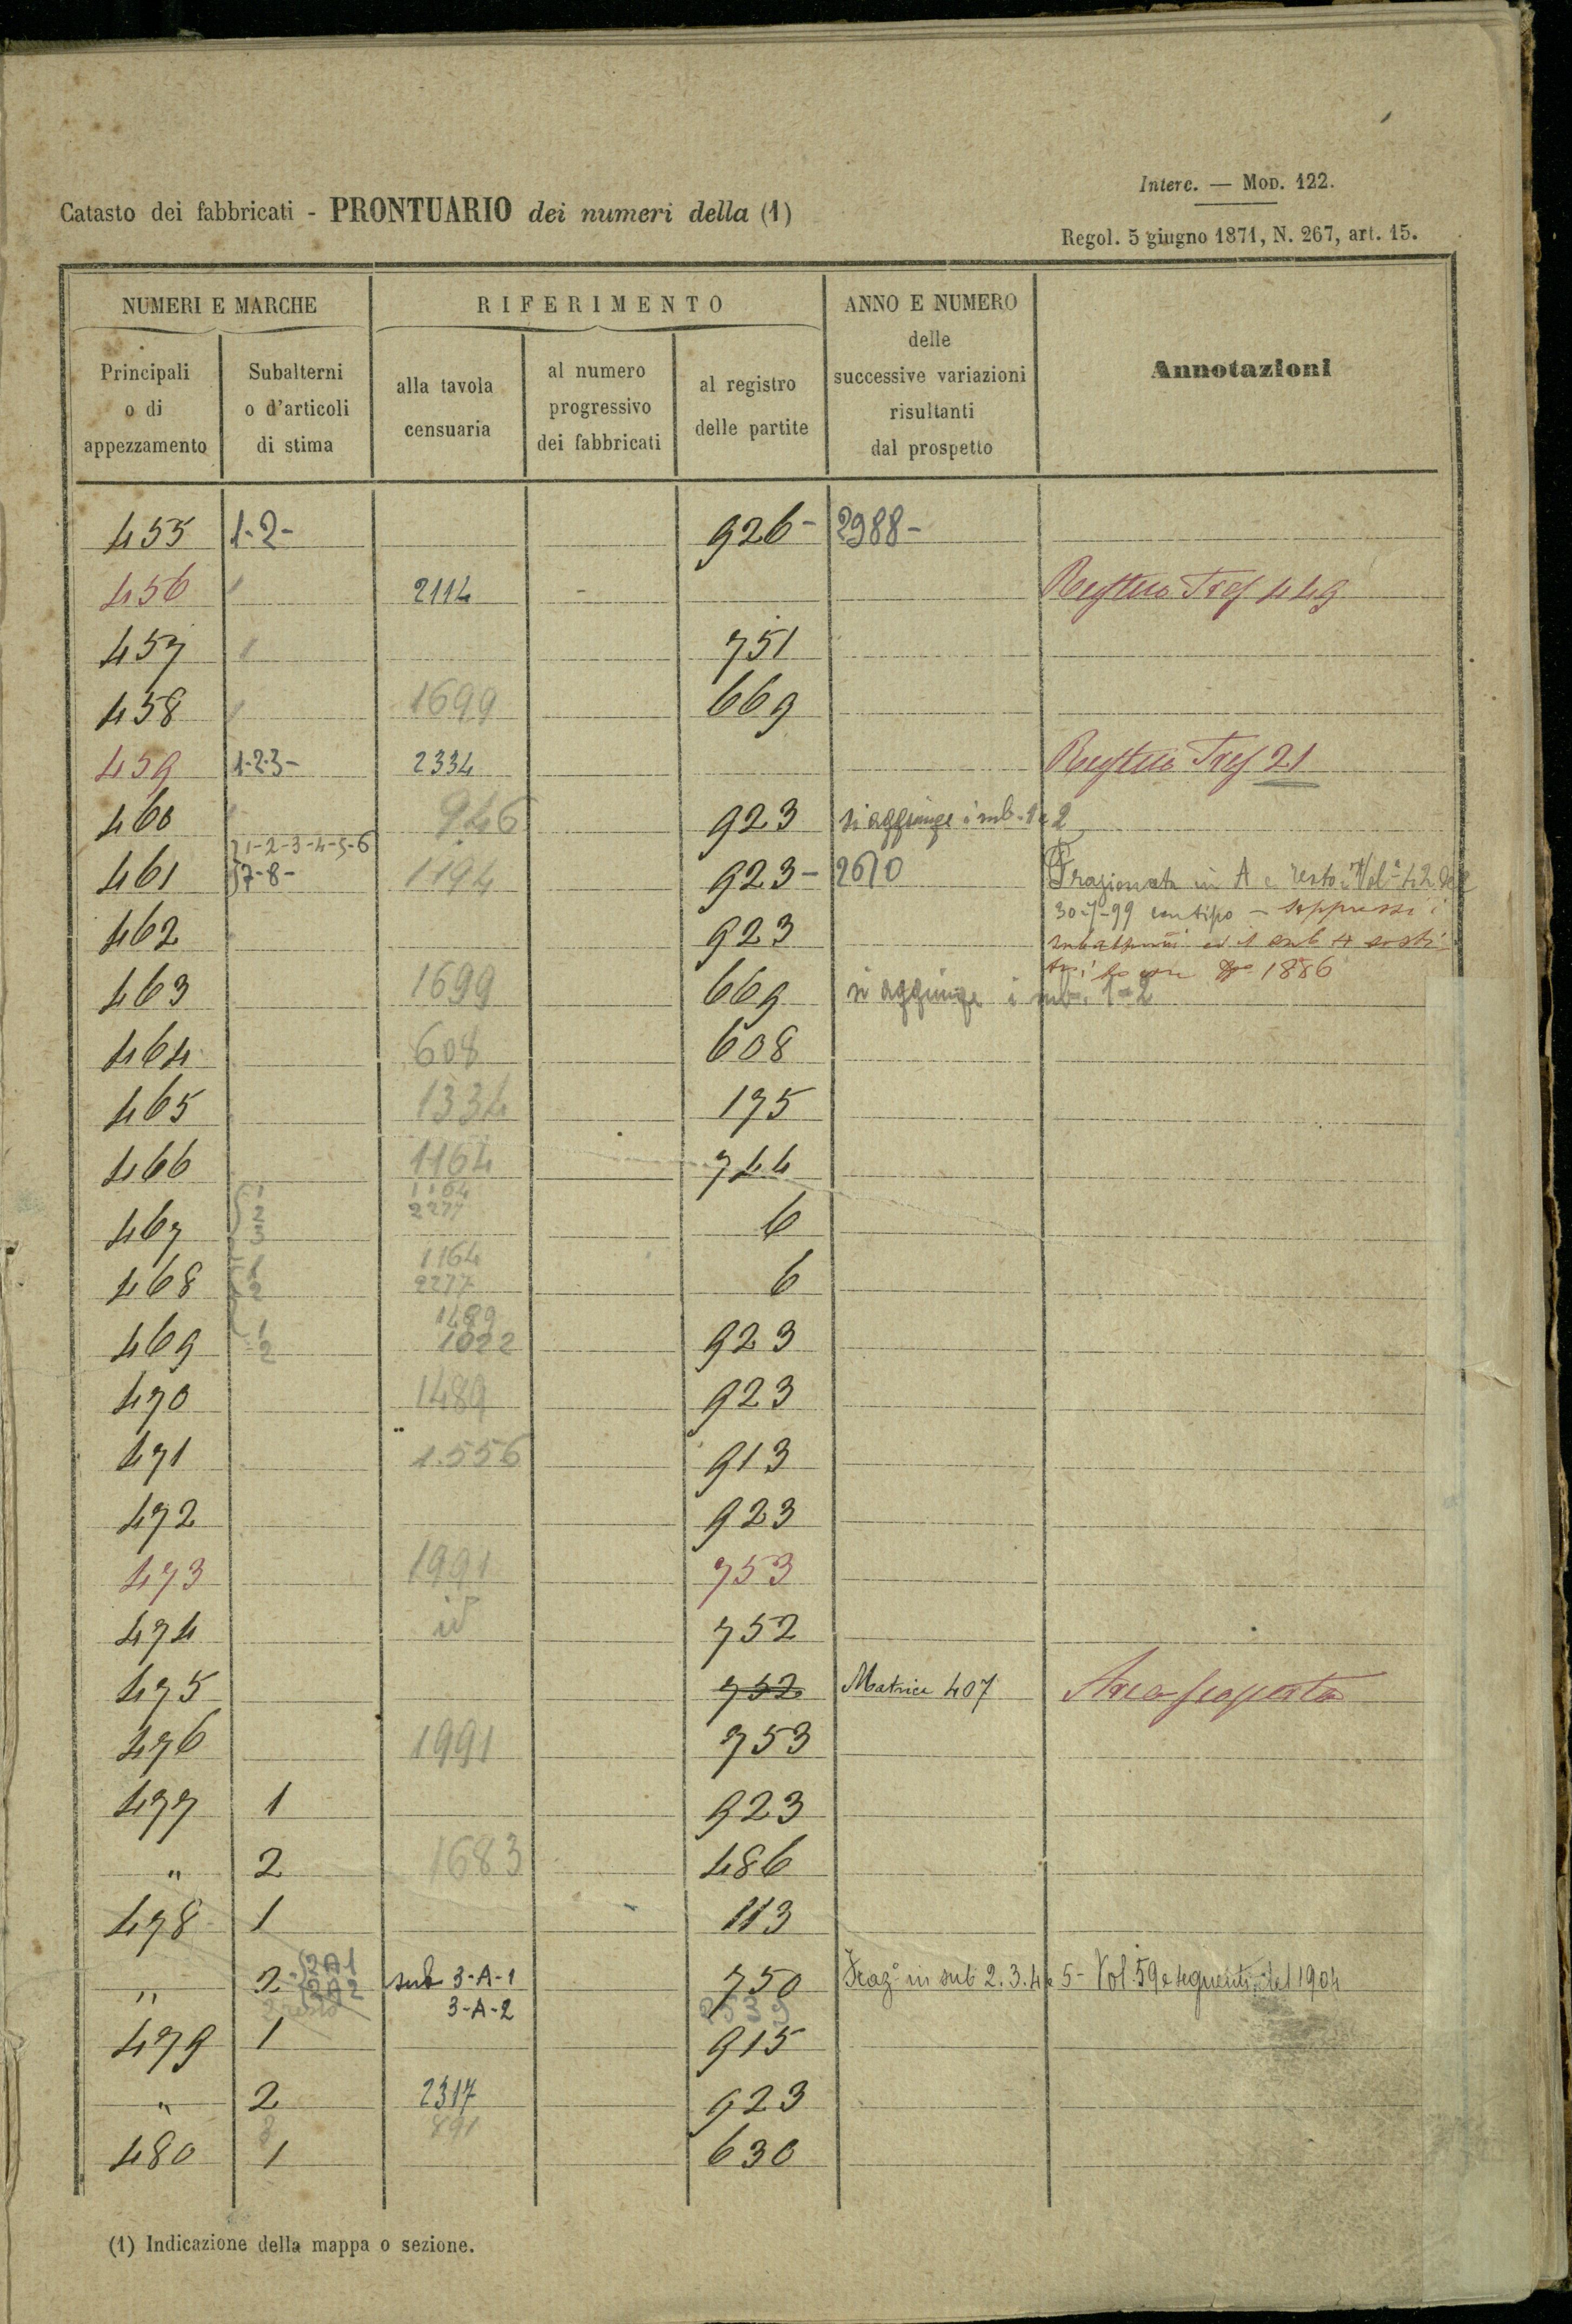 Interc. — Mod. 122.
Catasto dei fabbricati - PRONTUARIO dei numeri della (1)
Regol. 5 giugno 1871, N. 267, art. 15.
NUMERI E MARCHE
RIFERIMENTO
ANNO E NUMERO
delle
successive variazioni
risultanti
dal prospetto
Annotazioni
Principali
o di
appezzamento
Subalterni
o d'articoli
di stima
alla tavola
censuaria
al numero
progressivo
dei fabbricati
al registro
delle partite
455 1-2- 926- 2988-
456 2114 449
457 751
458 1699 669
459 1-2-3- 2334 21
460 946 923 si aggiunge i sub. 1 e 2
1-2-3-4-5-6
461 7-8- 1194 923- 2610 Frazionata in A e resto Vol. 42 del
30-7-99 con tipo - soppressi i
462 923 sub 4
1886
463 1699 669 si aggiunge i sub. 1-2
464 608 608
465 1334 175
466 1164 744
1 1164
2 2277
467 3 6
1 1164
468 2 2277 6
1 1489
469 2 1022 923
470 1489 923
471 1556 913
472 923
473 1991 753
474 id 752
475 752 Matrice 407 Area scoperta
476 1991 753
477 1 923
" 2 1683 486
478 1 113
2A1
" 2 2A2 sub 3-A-1 750 Fraz.e in sub 2.3.4 e 5- Vol. 59 e seguenti del 1904
3-A-2
479 1 915
" 2 2317 923
3 891
480 1 630
(1) Indicazione della mappa o sezione.